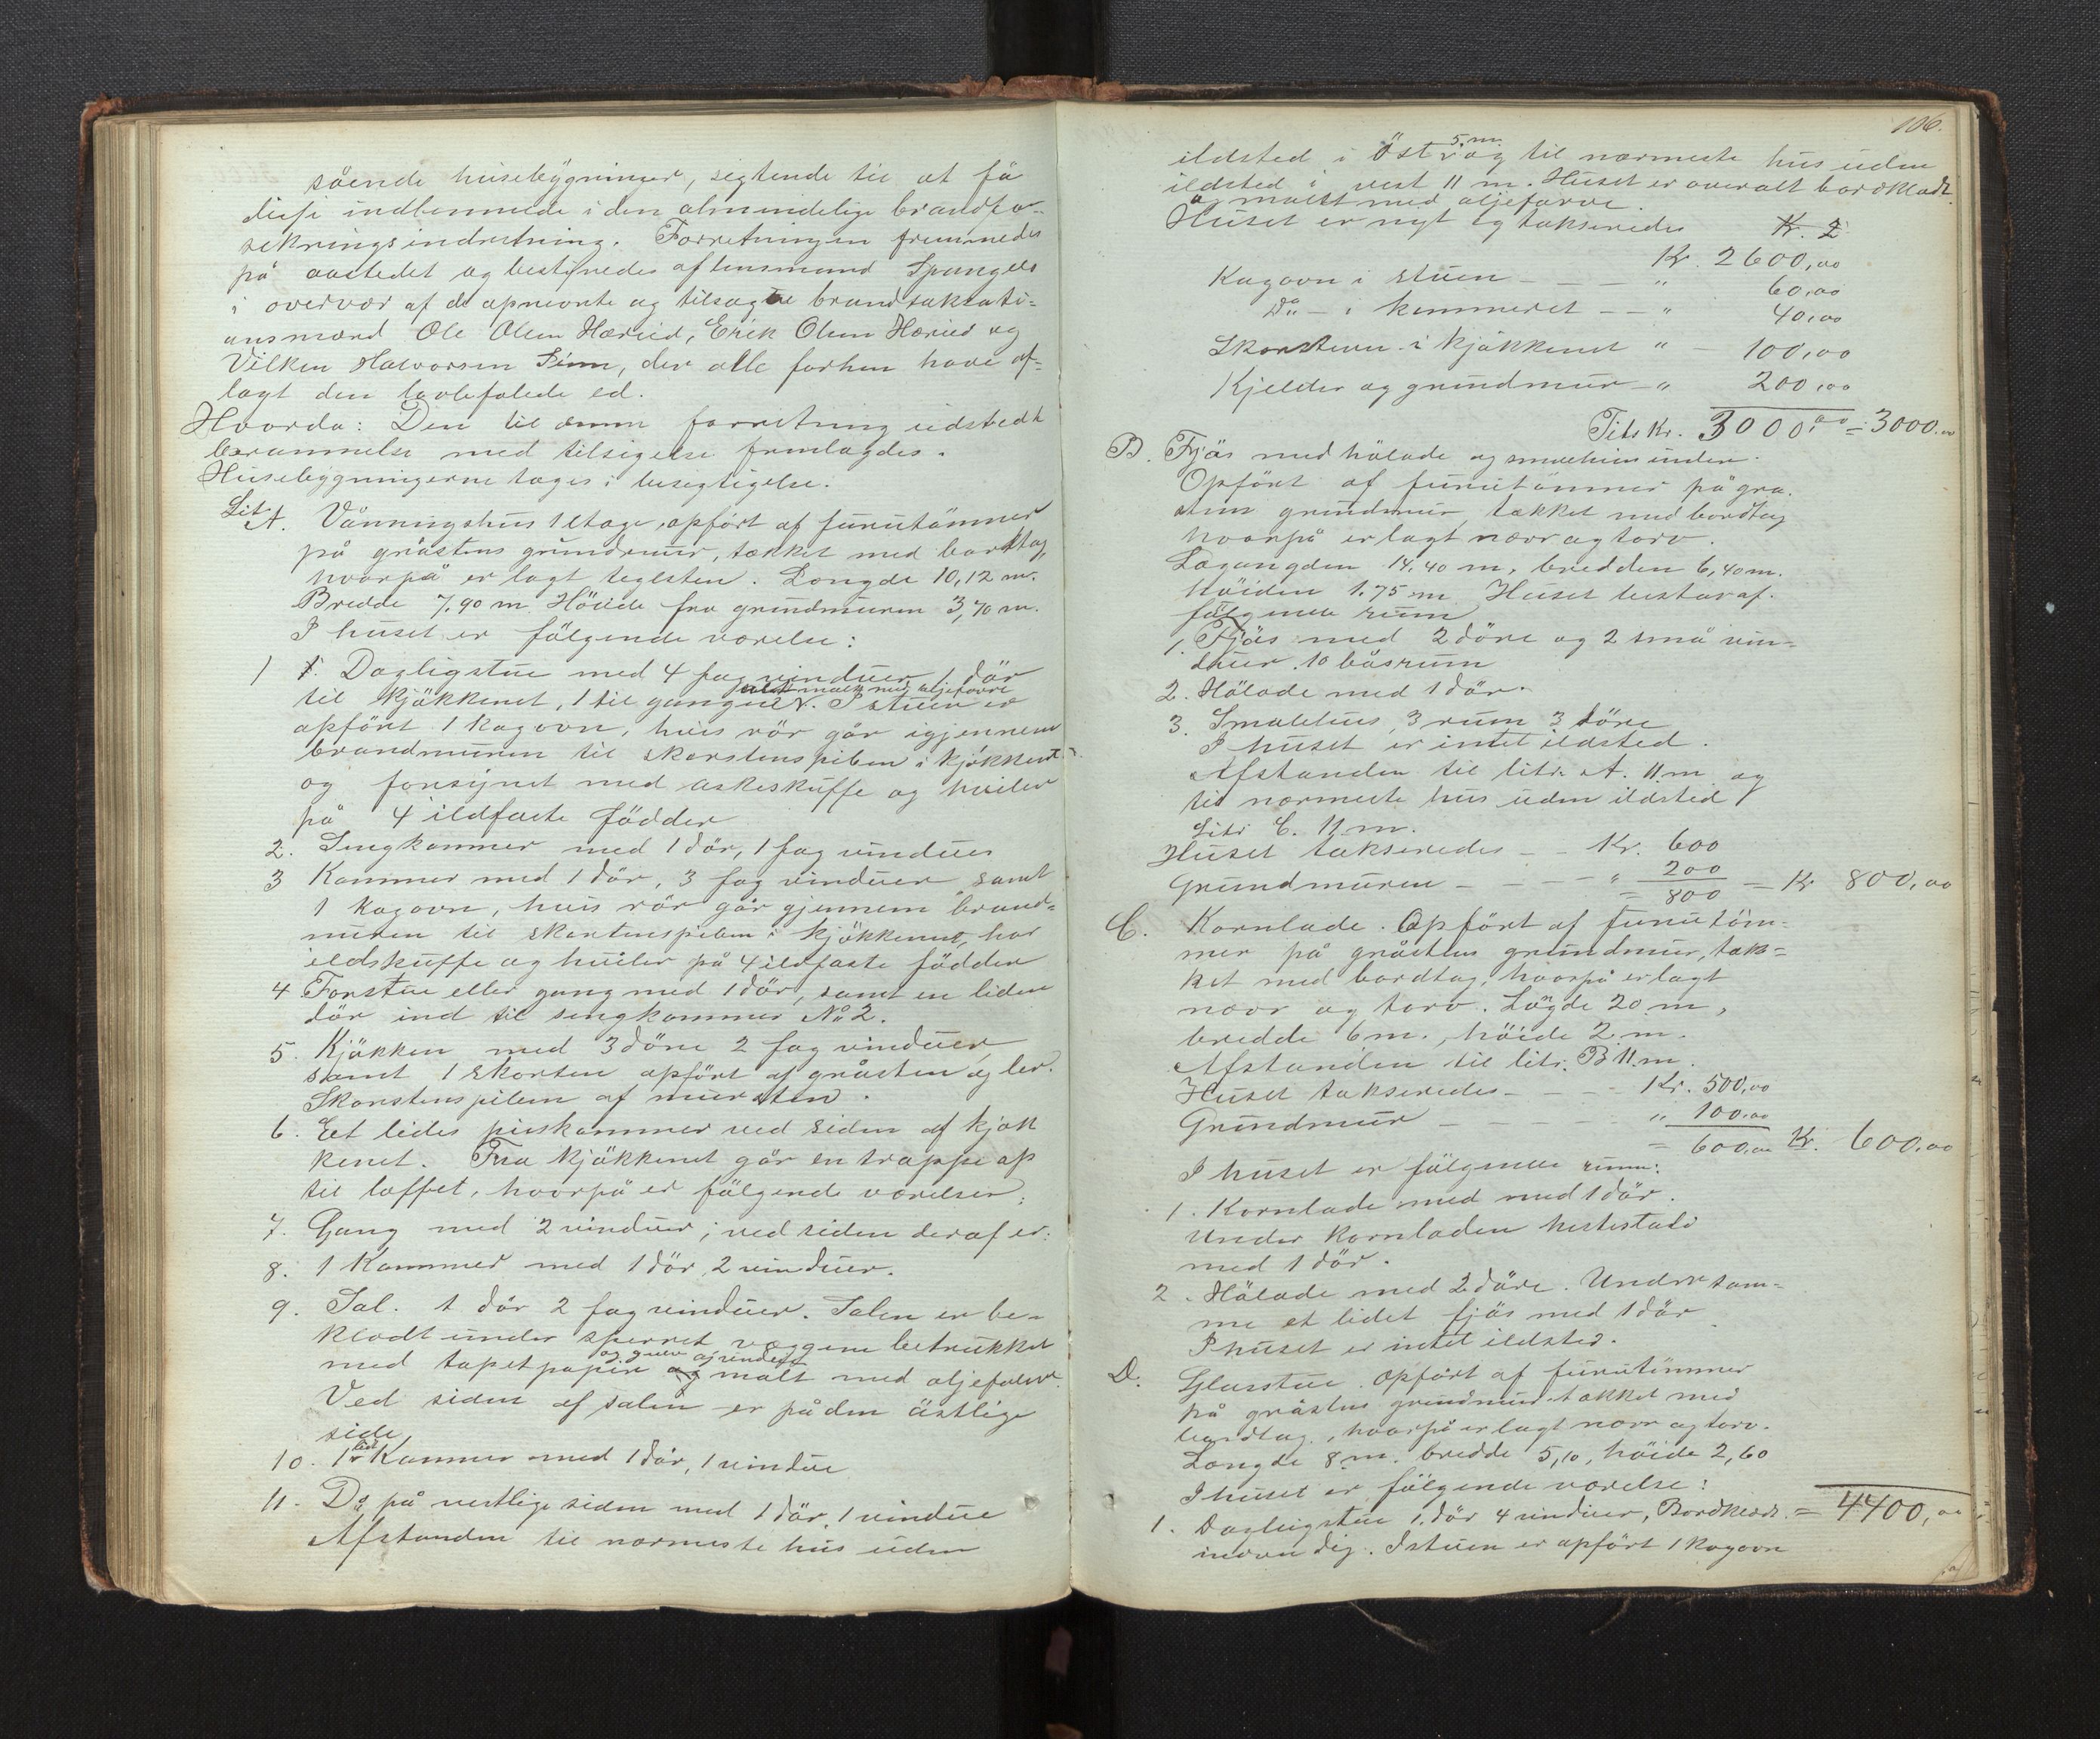 såënde husebygninger, sigtende til at få
disse indlemmede i den almindelige brandfor-
sekringsindretning. Forretningen fremmedes
på aastedet og bestyredes af lensmand Spangelo
i overvær af de opnevnte og tilsagte brandtakstati-
onsmænd Ole Olsen Hæreid, Erik Olsen Hæreid og
Vilken Halvorsen Simm, der alle forhen have af-
lagt den lovbefalede ed.
Hvorda: Den til denne forretning udstedt
berammelse med tilsigelse fremlagdes.
Husebygningerne toges i besegtigelse.
Lit A. Vånningshus 1 etage, opført af furutömmer
på gråstens grundmur, tækket med bordtag,
hvorpå er lagt teglsten. Længde 10,12 m.
Bredde 7,90 m. Höide fra grundmuren 3,70 m.
I huset er fölgende værelse:
1 1. Dagligstue med 4 fag vinduer, 1 dör
malt med oljefarve
til kjökkenet, 1 til gangen. I stuen er
opfört 1 kagovn, hvis rör går igjennem
brandmuren til skorstenspiben i kjökkenet
og forsynet med askeskuffe og hviler
på 4 ildfaste födder
2. Sengkammer med 1 dör, 1 fag vinduer
3 Kammer med 1 dör, 3 fag vinduer samt
1 kagovn, hvis rör går gjennem brand=
muren til skorstenspiben i kjökkenet, har
ildskuffe og hviler på 4 ildfaste födder
4 Forstue eller gang med 1 dör, samt en liden
dör ind til sengkammer No 2.
5. Kjökken med 3 döre 2 fag vinduer,
samt 1 skorsten opfört af gråsten og ler.
Skorstenspiben af mursten.
6. Eet lidet pieskammer ved siden af kjök
kenet. Fra kjökkenet går en trappe op
til loftet, hvorpå er fölgende værelser;
7. Gang med 2 vinduer; ved siden deraf er:
8. 1 Kammer med 1 dör, 2 vinduer.
9. Sal. 1 dör 2 fag vinduer. Salen er be-
klædt under sperret væggene betrukket
og gulv og vinduer
med tapetpapir og malt med oljefarve.
Ved siden af salen er på den östlige
side
10. 1 lidt Kammer med 1 dör, 1 vindue
11. Do på vestlige siden med 1 dör, 1 vindue
Afstanden til nærmeste hus uden
106.
5 m.
ildsted i öst og til nærmeste hus uden
ildsted i vest 11 m. Huset er overalt bordklædt
og malt med oljefarve.
Huset er nyt og takseredes Kr. 2
Kr. 2600,00
Kagovn i stuen - - - " 60,00
Do - i kammeret - - " 40,00
Skorsten i kjökkenet " - 100,00
Kjelder og grundmur - " 200,00
Tils Kr. 3000,00 = 3000,00
B. Fjös med hölade og smalehus under.
Opfört af furutömmer på grå-
stens grundmur, tækket med bordtag
hvorpå er lagt næver og torv.
Længden 14,40 m, bredden 6,40 m.
höiden 1.75 m Huset bestar af
fölgende rum
1. Fjös med 2 döre og 2 små vin-
duer. 10 båsrum
2. Hölade med 1 dör.
3. Smalehus, 3 rum 3 döre
I huset er intet ildsted.
Afstanden til litr. A. 11 m og
til nærmeste hus uden ildsted
Litr C. 11 m.
Huset takseredes - - Kr. 600
Grundmuren - - - - " 200
= 800 = Kr 800,00
C. Kornlade. Opfört af furutöm-
mer på gråstens grundmur, tæk=
ket med bordtag, hvorpå er lagt
næver og torv. Længde 20 m,
bredde 6 m., höide 2 m.
Afstanden til litr. B 11 m.
Huset takseredes - - - Kr. 500,00
Grundmur - - - - " 100,00
= 600,00 Kr. 600,00
I huset er fölgende rum:
1. Kornlade med med 1 dör.
Under kornladen hestestald
med 1 dör.
2. Hölade med 2 döre. Under sam-
me et lidet fjös med 1 dör
I huset er intet ildsted.
D. Glasstue. Opfört af furutömmer
på gråstens grundmur tækket med
bordtag, hvorpå er lagt næver og torv.
Længde 8 m. bredde 5,10, höide 2,60
I huset er fölgende værelse:
1. Dagligstue 1 dör 4 vinduer, Bordklædt = 4400,00
indvendig. I stuen er opfört 1 kagovn